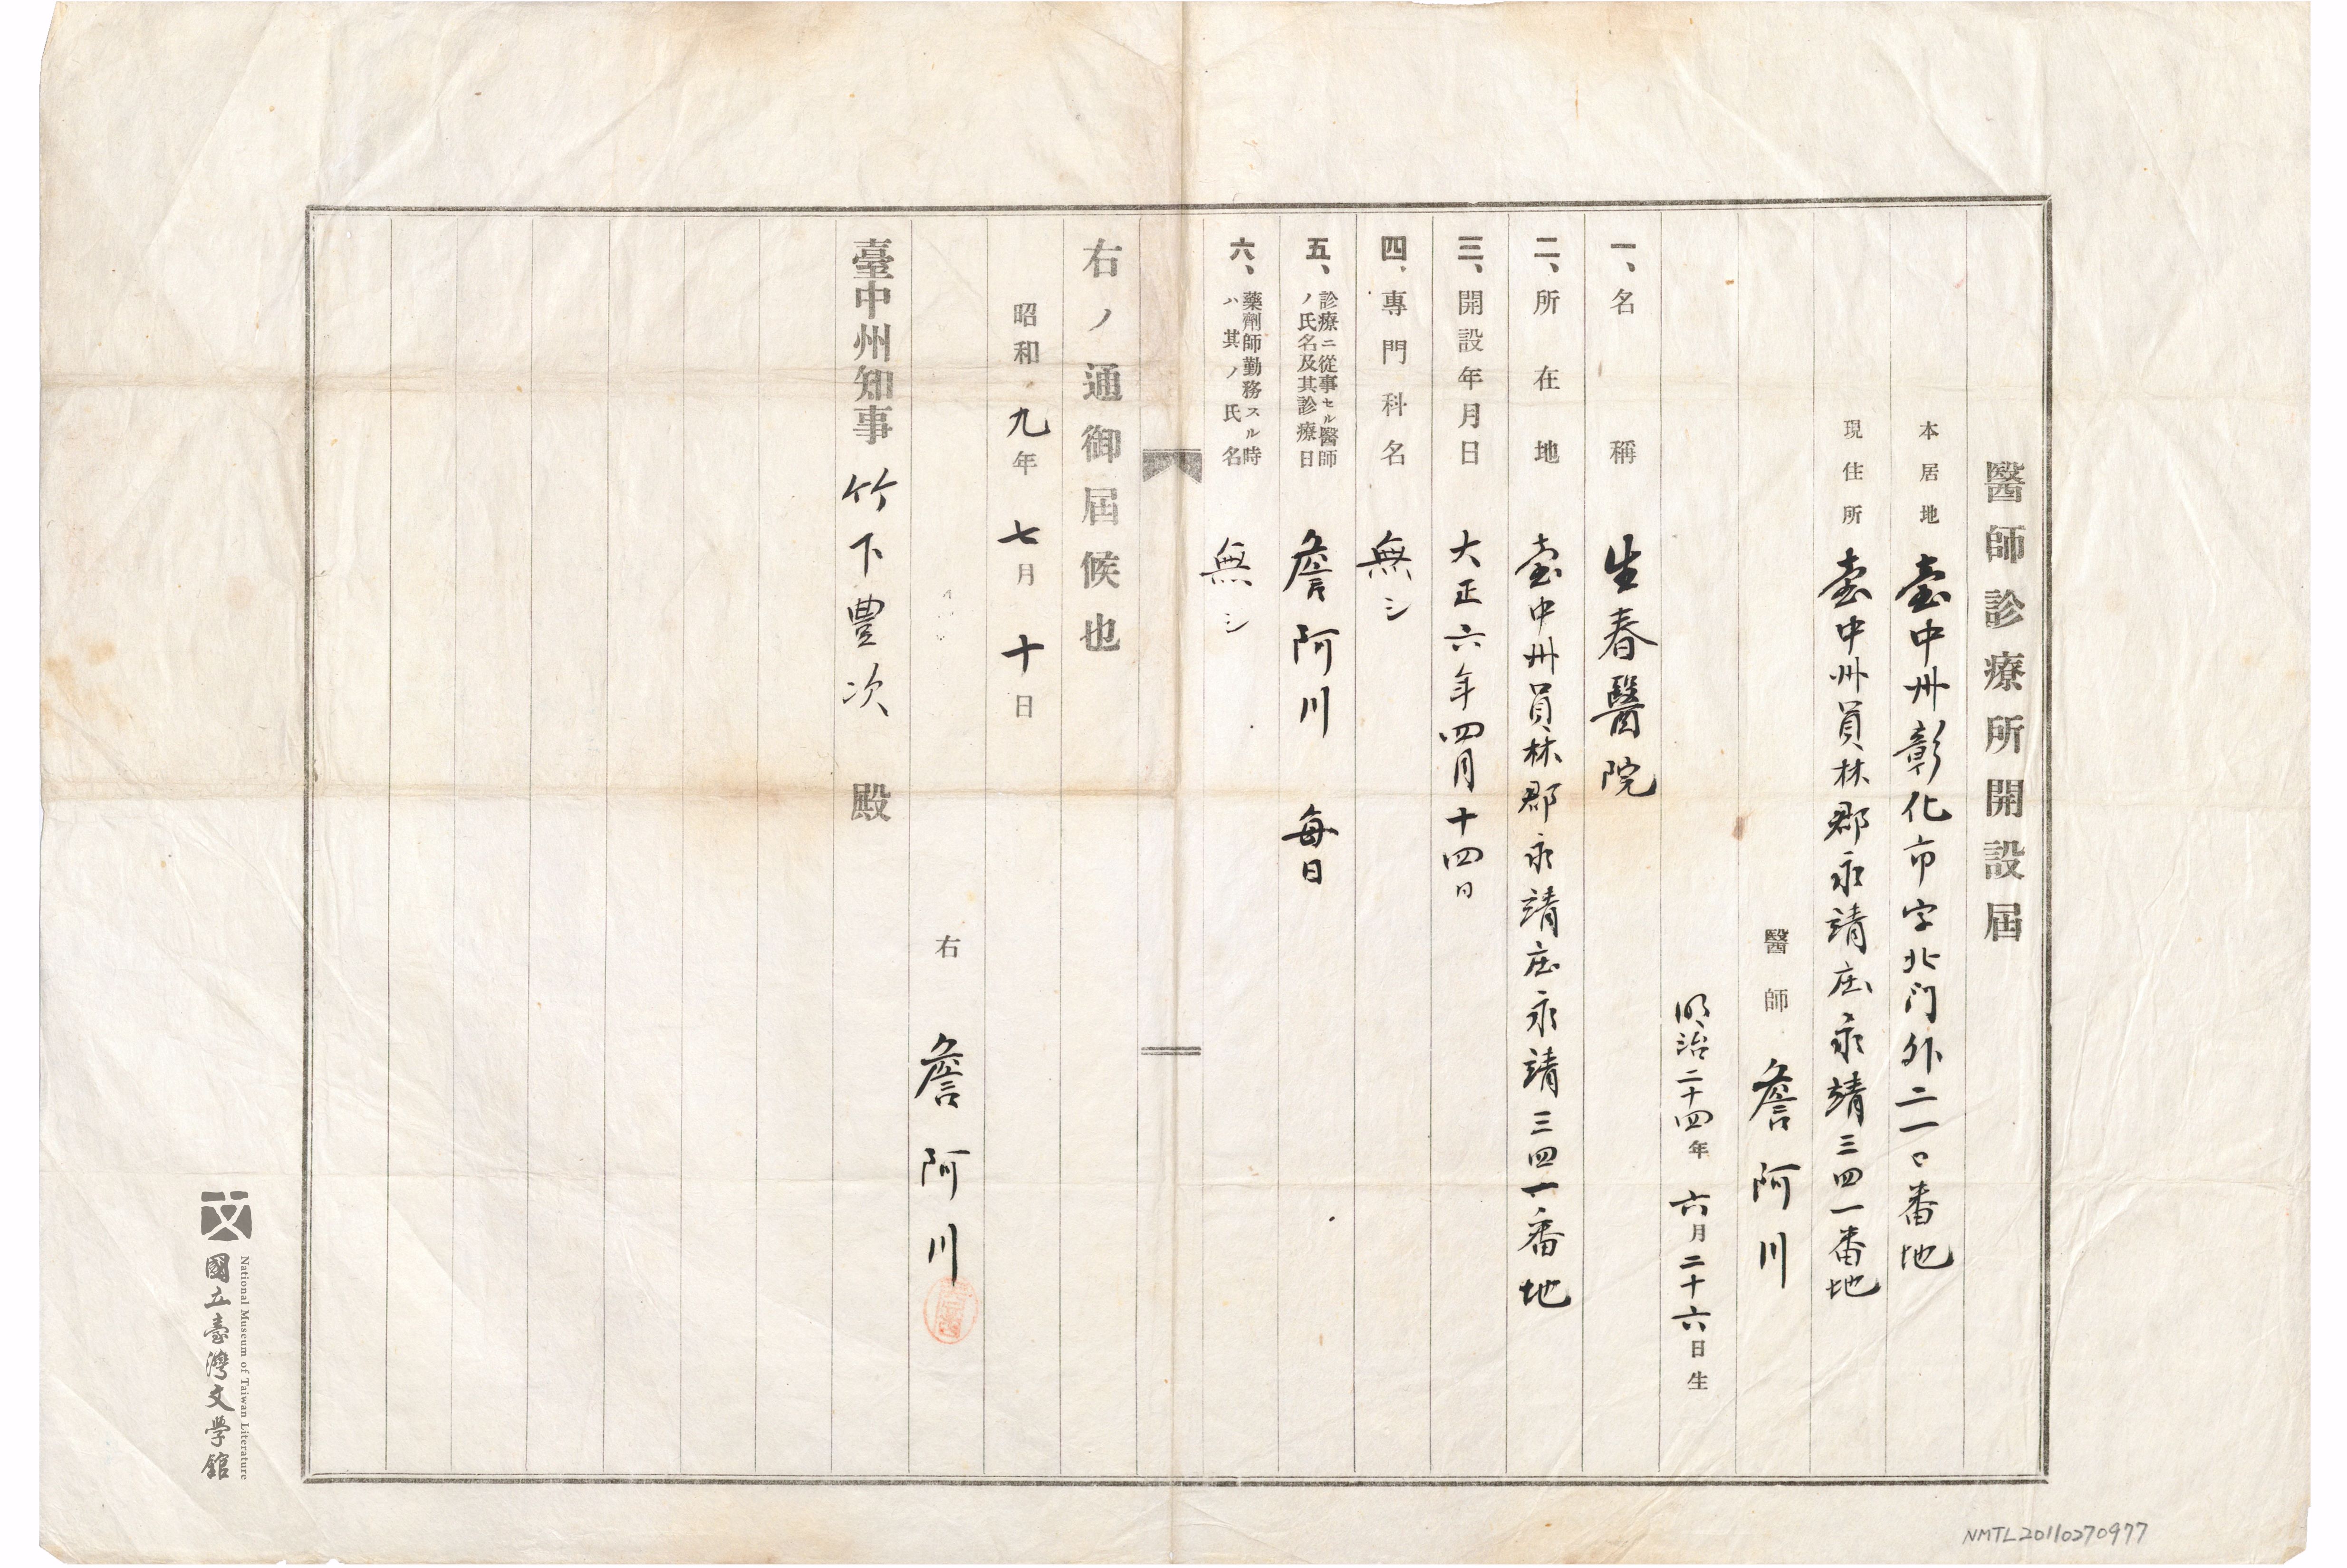 醫師診療所開設届
本居地 臺中州彰化市字北门外二一〇番地
現住所 臺中州員林郡永靖庄永靖三四一番地
醫師 詹阿川
明治二十四年六月二十六日生
一、名稱 生春醫院
二、所在地 臺中州員林郡永靖庄永靖三四一番地
三、開設年月日 大正六年四月十四日
四、專門科名 無シ
五、診療ニ從事セル醫師ノ氏名及其診療日 詹阿川 每日
六、藥劑師勤務スル時ハ其ノ氏名 無シ
右ノ通御届候也
昭和九年七月十日
右 詹阿川
臺中州知事 竹下豊次 殿
國立臺灣文學館
National Museum of Taiwan Literature
NMTL20110270977